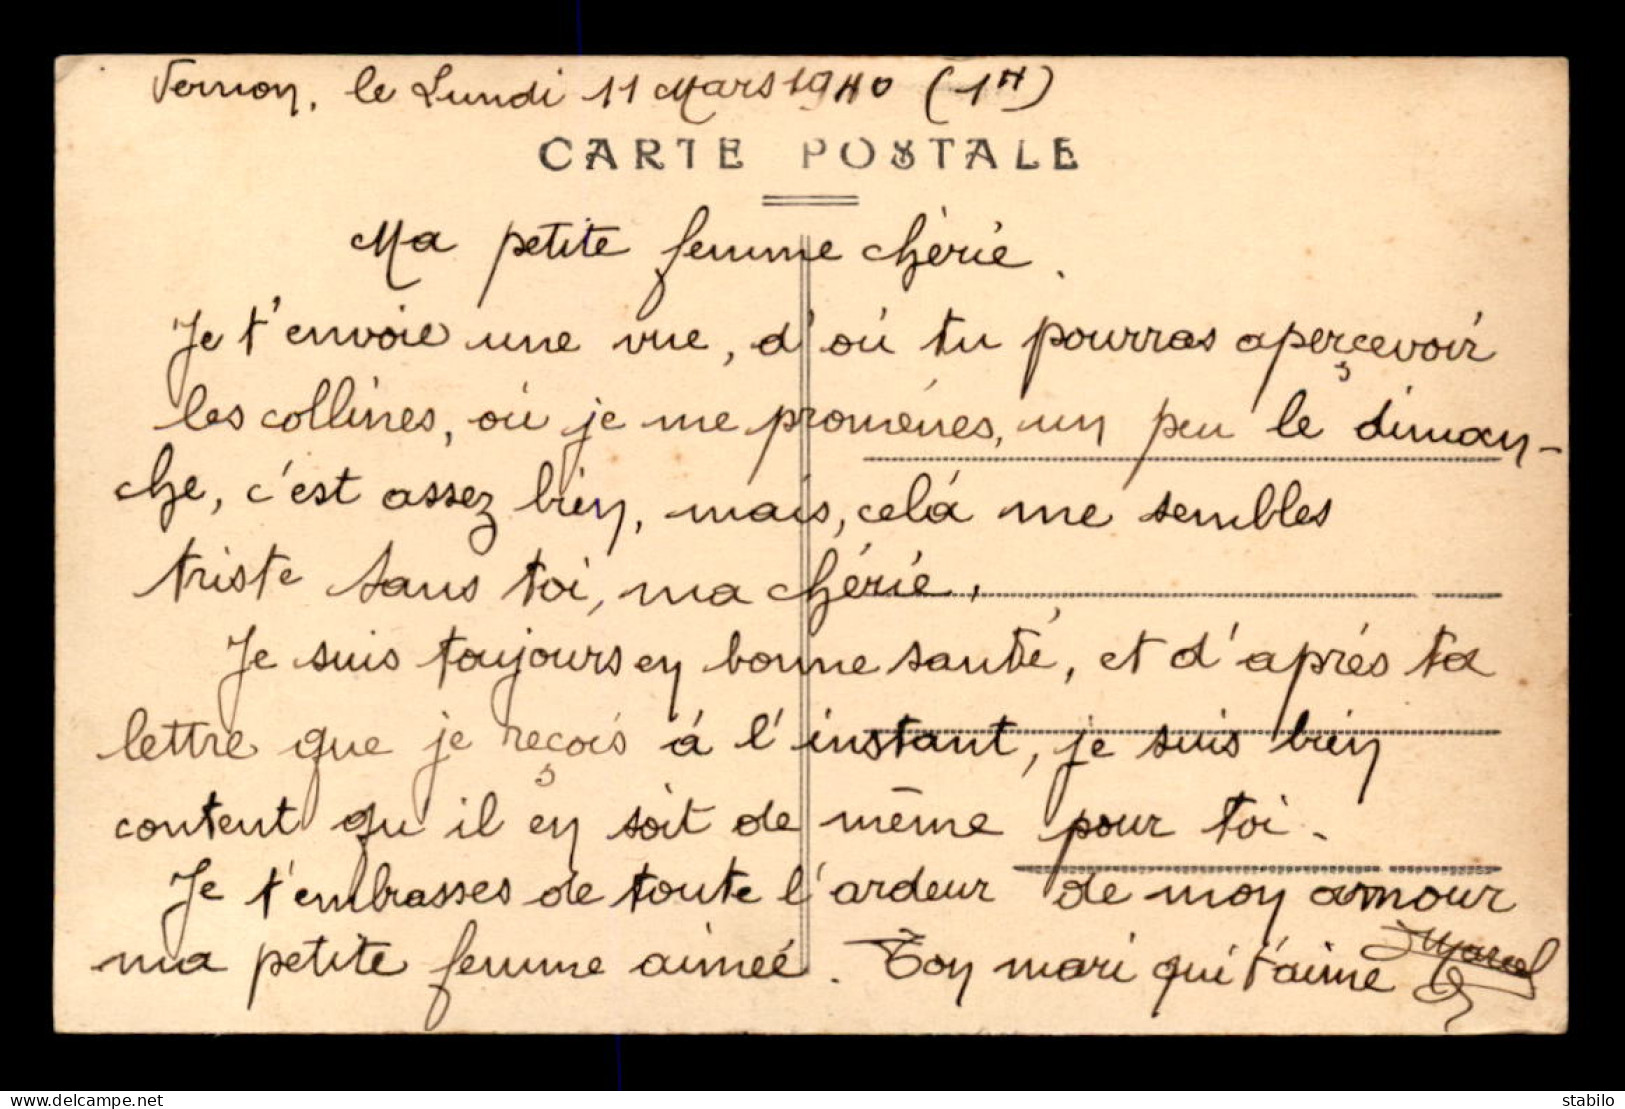 Vernon, le Lundi 11 Mars 1940 (1H)
CARTE POSTALE
Ma petite femme chérie.
Je t'envoie une vue, d'où tu pourras aperçevoir
les collines, où je me promènes, un peu le diman-
che, c'est assez bien, mais, celà me sembles
triste sans toi, ma chérie.
Je suis toujours en bonne santé, et d'après ta
lettre que je reçois à l'instant, je suis bien
content qu'il en soit de même pour toi.
Je t'embrasses de toute l'ardeur de mon amour
ma petite femme aimeé. Ton mari qui t'aime Marcel
delcampe.net
stabilo